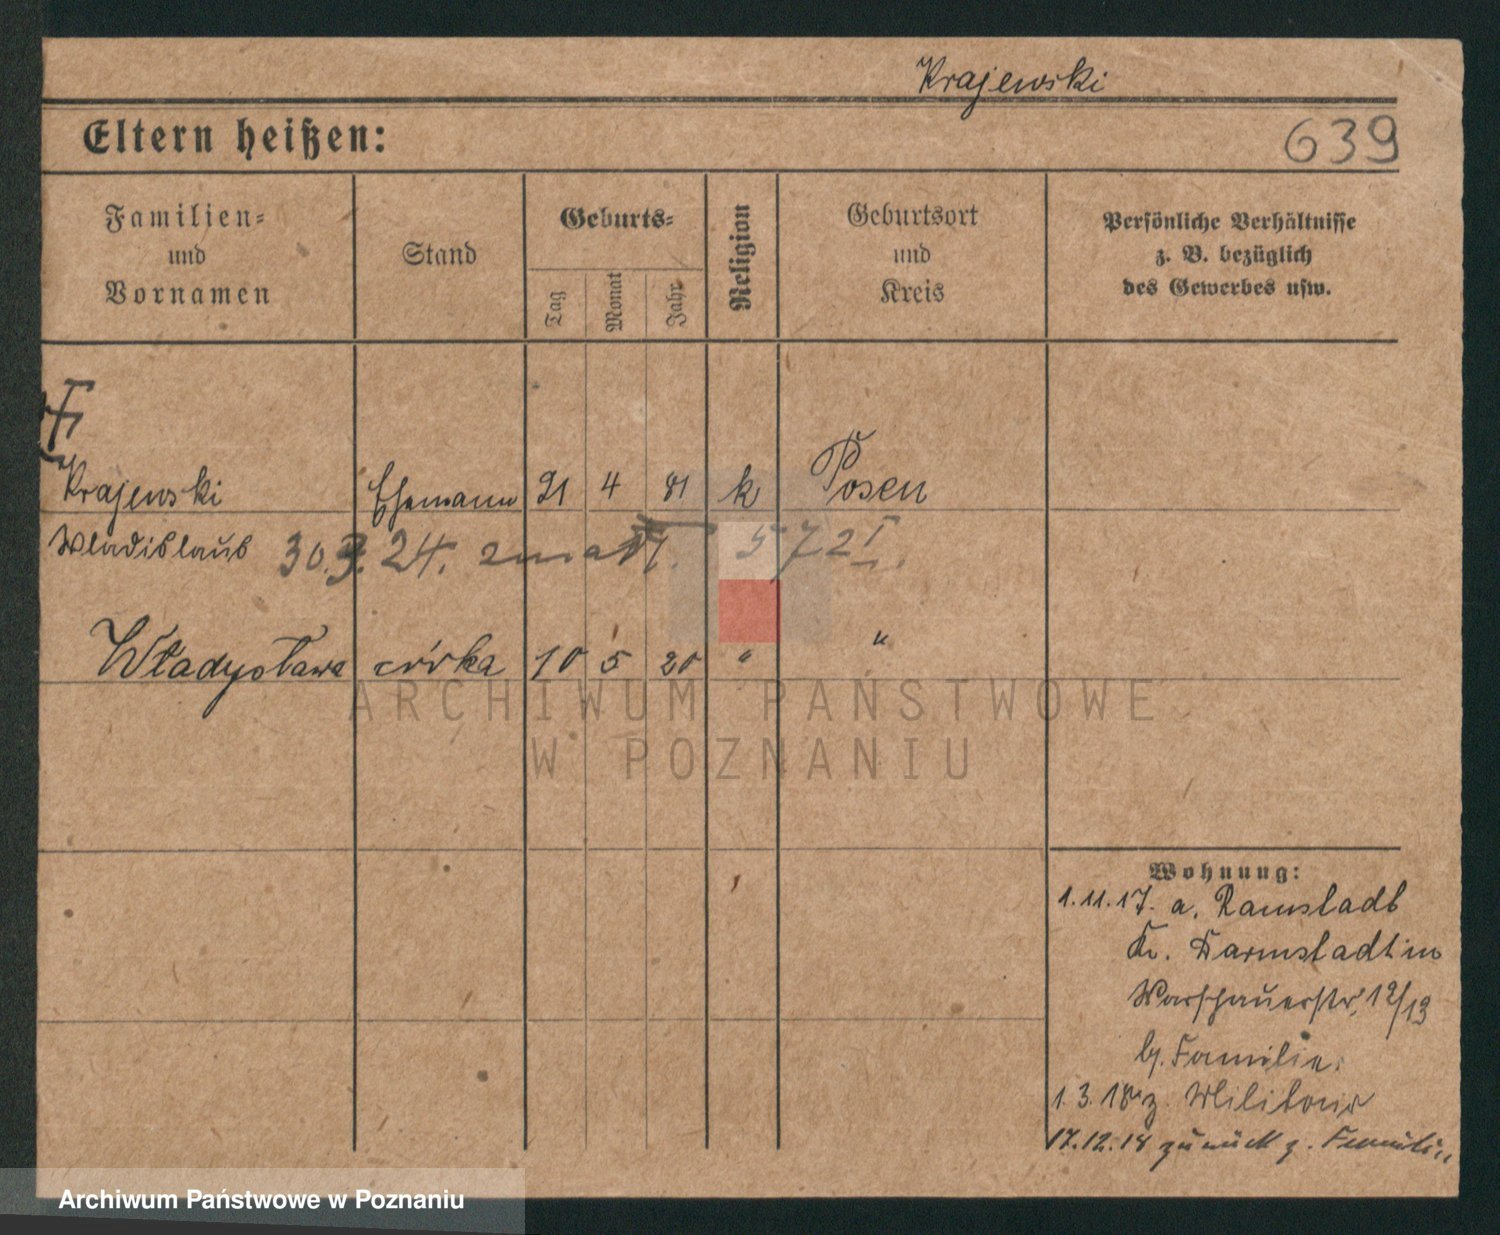 Krajewski
Eltern heißen:
639
Familien-
und
Vornamen
Stand
Geburts-
Tag
Monat
Jahr
Religion
Geburtsort
und
Kreis
Persönliche Verhältnisse
z. B. bezüglich
des Gewerbes usw.
Krajewski Ehemann 21 4 81 k Posen
Wladislaus 30.3.24. zmarł. 572 I.
Władysława córka 10 5 20 " "
ARCHIWUM PAŃSTWOWE
W POZNANIU
Wohnung:
1.11.17. a. Ramstadt
Kr. Darmstadt in
Warschauerstr. 12/13
b. Familie.
1.3.18 z. Militär
17.12.18 zurück z. Familie
Archiwum Państwowe w Poznaniu